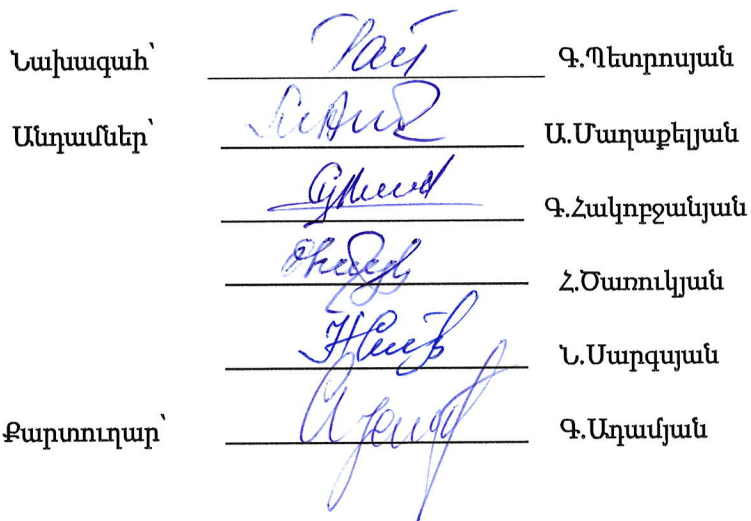 Նախագահ՝ Գ.Պետրոսյան
Անդամներ՝ Ա.Մաղաքելյան
Գ.Հակոբջանյան
Հ.Ծառուկյան
Ն.Սարգսյան
Քարտուղար՝ Գ.Ադամյան